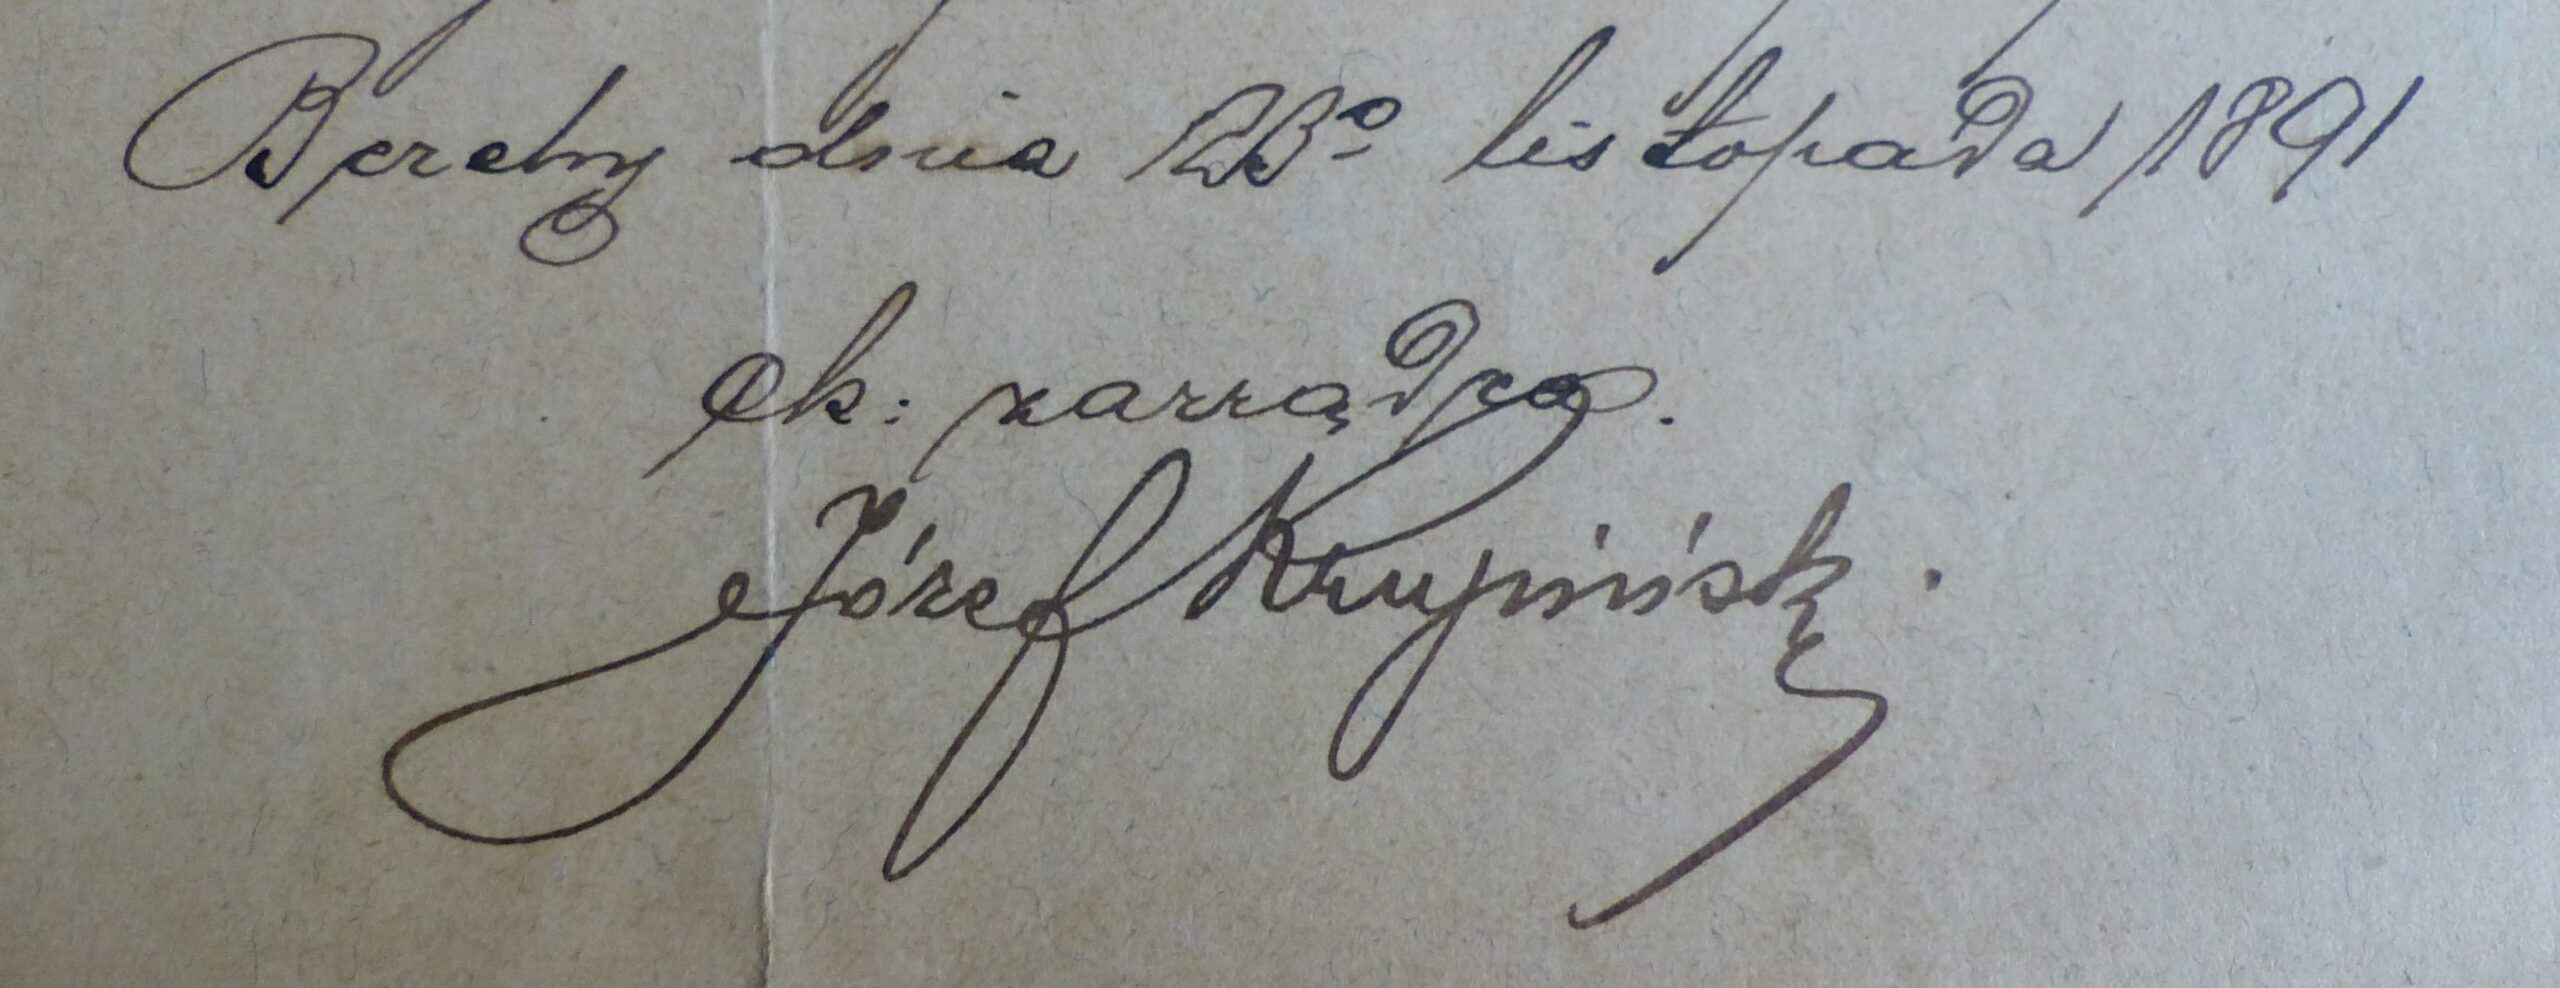 Berehy dnia 23º listopada 1891
ek: zarządca.
Józef Krupiński.